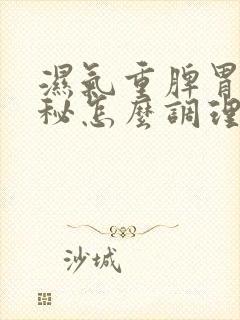 濕氣重脾胃
秘怎麼調理
沙城